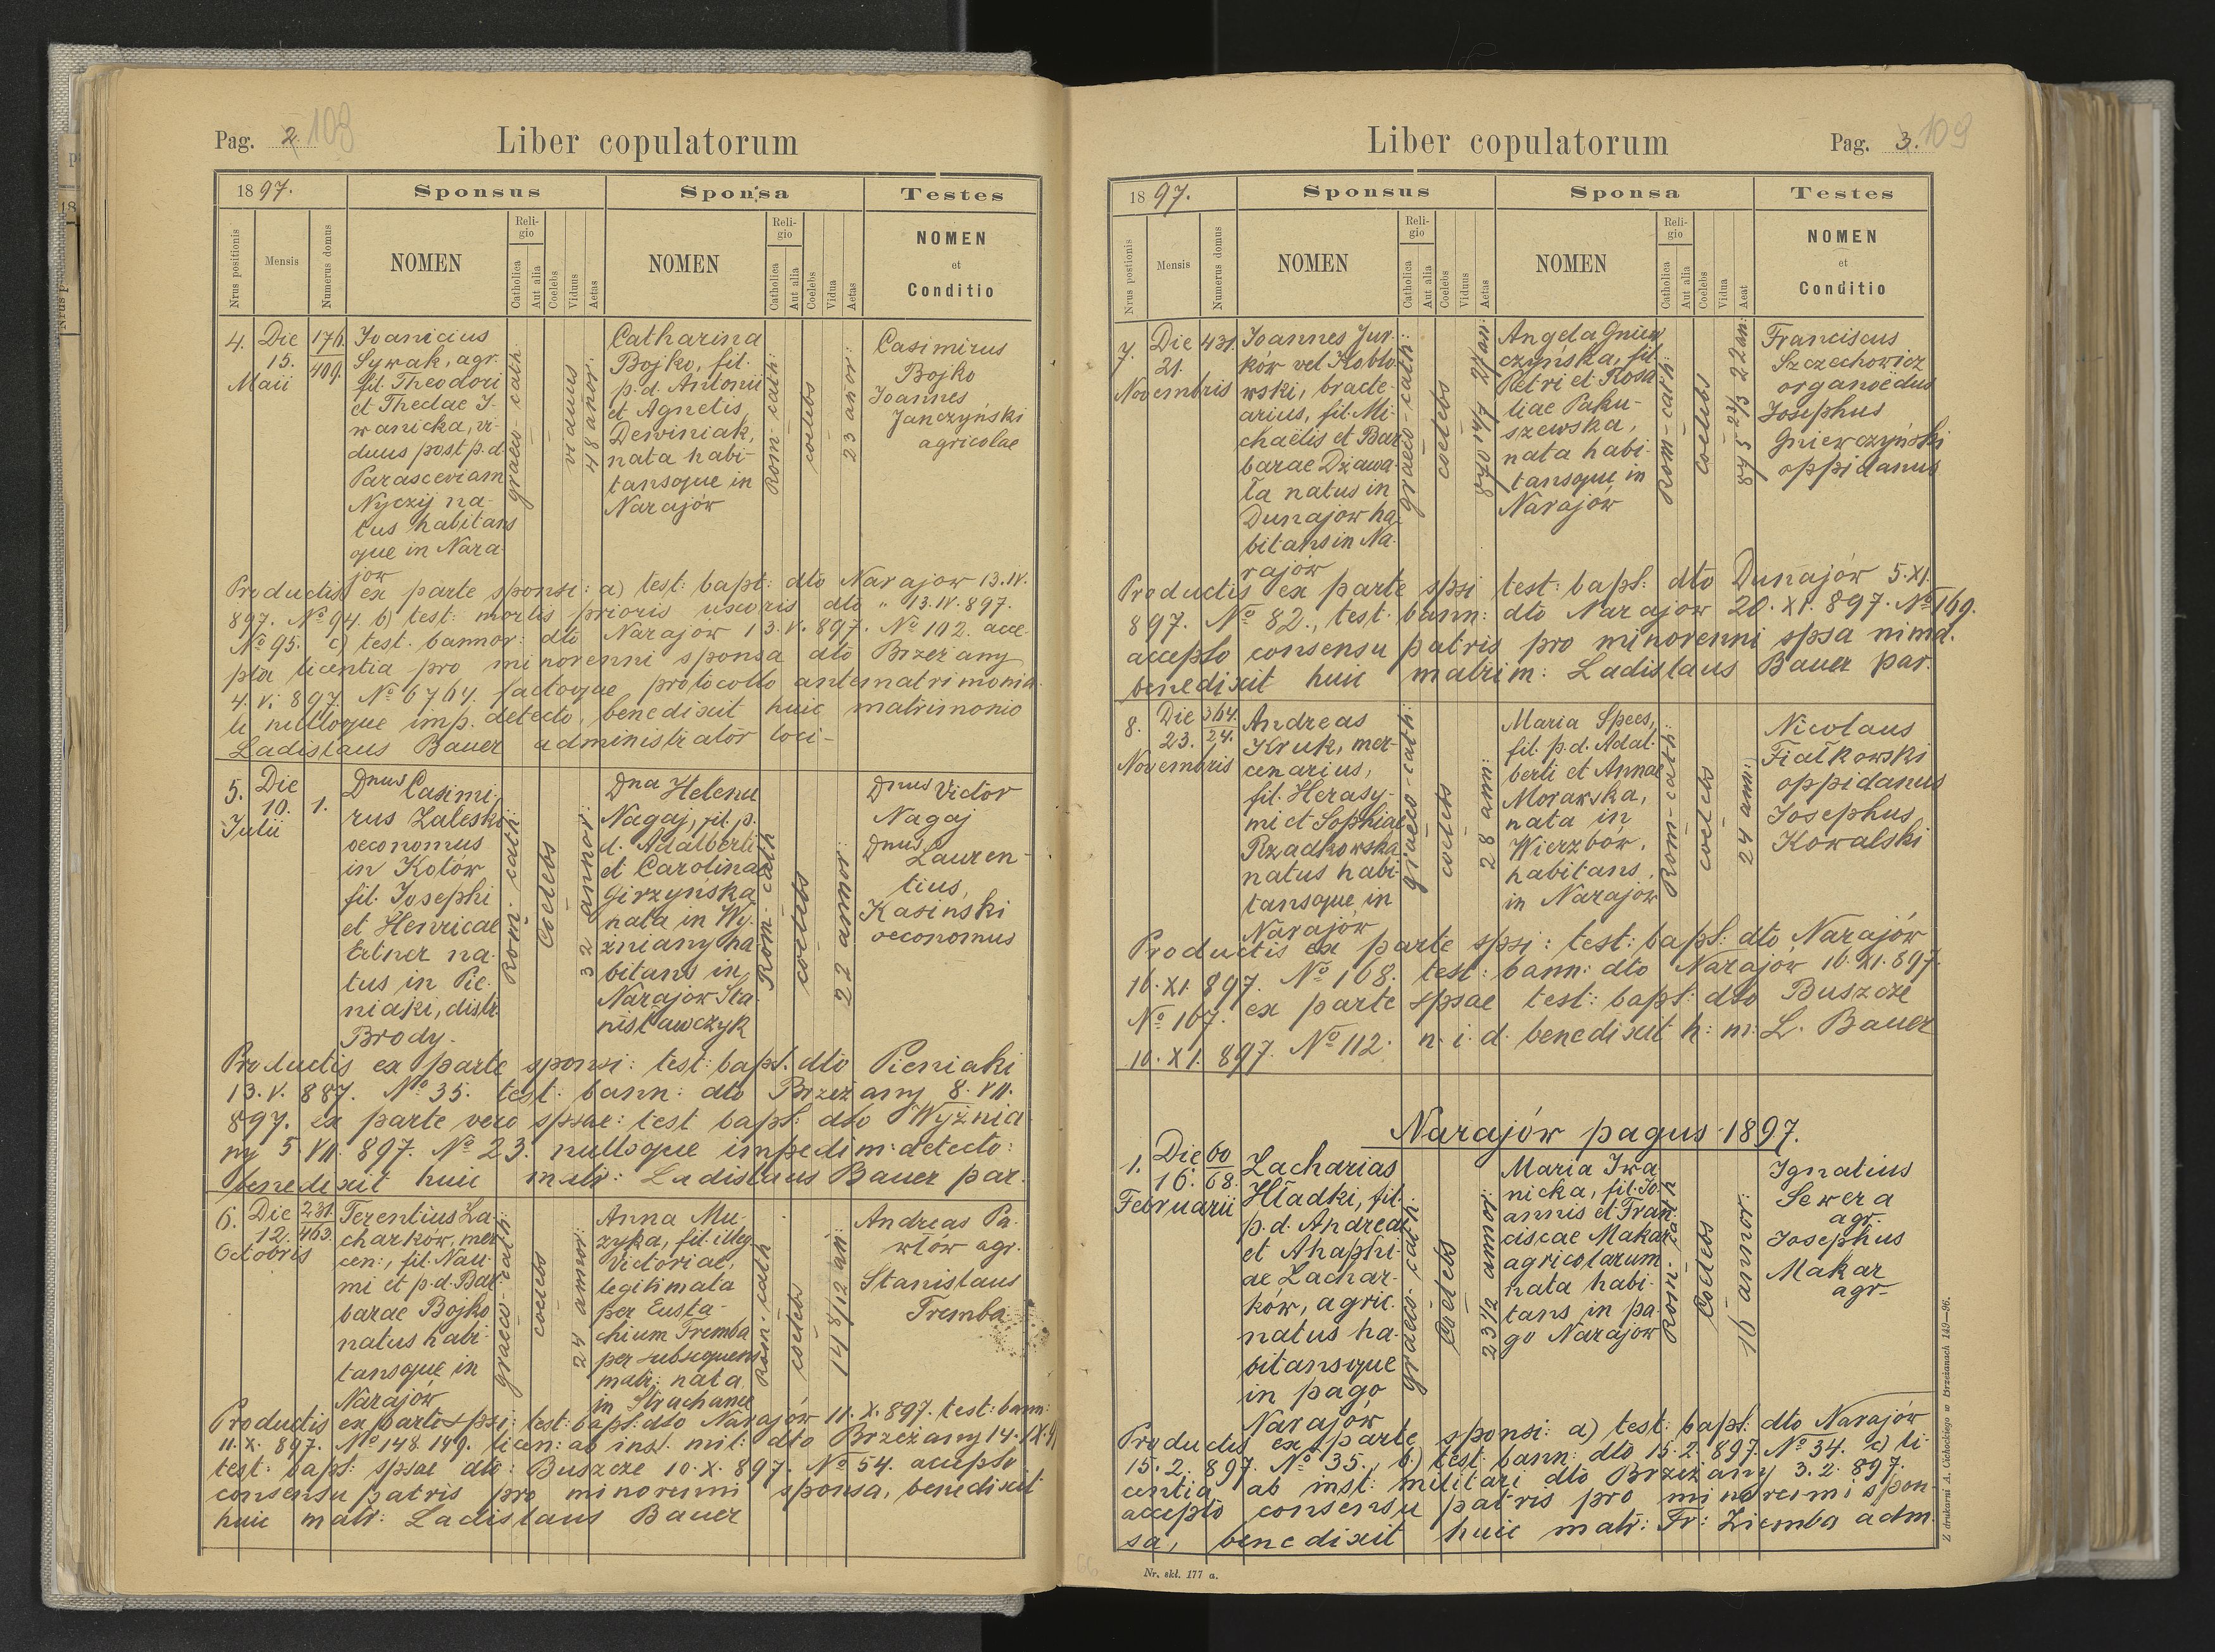 Pag. 2. 108
Liber copulatorum
1897.
Sponsus
Sponsa
Testes
Nrus positionis
Mensis
Numerus domus
NOMEN
Religio
Catholica
Aut alia
Coelebs
Viduus
Aetas
NOMEN
Religio
Catholica
Aut alia
Coelebs
Vidua
Aetas
NOMEN
et
Conditio
4.
Die
15.
Maii
176.
409.
Joanicius
Sywak, agr.
fil. Theodori
et Thedae I-
wanicka, vi-
duus post p. d.
Parasceviam
Nyczij na-
tus habitans
que in Nara-
jow
graeco-cath:
viduus
48 annor:
Catharina
Bojko, fil.
p. d. Antonii
et Agnetis
Dewiniak,
nata habi-
tansque in
Narajów
Rom-cath:
coelebs
23 annor:
Casimirus
Bojko
Joannes
Janczyński
agricolae
Productis ex parte sponsi: a) test: bapt: dto Narajow 13.IV.
897. No 94. b) test: mortis prioris uxoris dto " 13.IV.897.
No 95. c) test. bannor: dto Narajow 13.V.897. No 102. acce-
pta licentia pro minorenni sponsa dto Brzeżany
4.V.897. No 6764. factoque protocollo antematrimonia-
li nulloque imp. detecto, benedixit huic matrimonio
Ladislaus Bauer administrator loci-
5.
Die
10.
Julii
1.
Dnus Casimi-
rus Zaleski
oeconomus
in Kotów
fil. Josephi
et Henricae
Ertner na-
tus in Pie-
niaki, distr.
Brody.
Rom: cath:
Coelebs
32 annor:
Dna Helena
Nagaj, fil. p.
d. Adalberti
et Carolinae
Girzyńska
nata in Wy-
żniany ha-
bitans in
Narajow Sta-
nisławczyk
Rom: cath
coelebs
22 annor:
Dnus Victor
Nagaj
Dnus
Lauren-
tius,
Kasiński
oeconomus
Productis ex parte sponsi: test: bapt: dto Pieniaki
13.V.887. No 35. test: bann: dto Brzeżany 8.VII.
897. ex parte vero spsae: test bapt: dto Wyżnia-
ny 5.VII.897. No 23. nulloque impedim: detecto:
benedixit huic matr: Ladislaus Bauer par.
6.
Die
12.
Octobris
231.
463.
Terentius Za-
charków, mer-
cen:, fil. Nau-
mi et p. d. Bar-
barae Bojko
natus habi-
tansque in
Narajow
graeco-cath:
coelebs
24 annor:
Anna Mu-
zyka, fil. illeg.
Victoriae,
legitimata
per Eusta-
chium Tremba
per subsequens
matr: nata
in
Rom:-cath
coelebs
14 8/12 an:
Andreas Pa-
włów agr.
Stanislaus
Tremba
Productis ex parte spsi: test: bapt: dto Narajów 11.X.897. test: bann:
11.X.897. No 148. 149. licen: ab inst. mil: dto Brzeżany 14.IX.
test: bapt: spsae dto: Buszcze 10.X.897. No 54. accepto
consensu patris pro minorenni sponsa, benedixit
huic matr: Ladislaus Bauer
Liber copulatorum
Pag. 3. 109
1897.
Sponsus
Sponsa
Testes
Nrus postionis
Mensis
Numerus domus
NOMEN
Religio
Catholica
Aut alia
Coelebs
Viduus
Aetas
NOMEN
Religio
Catholica
Aut alia
Coelebs
Vidua
Aeat
NOMEN
et
Conditio
7.
Die
21.
Novembris
431.
Joannes Jur-
ków vel Kobło-
wski, bracte-
arius, fil. Mi-
chaëlis et Bar-
barae Dżawa-
ła natus in
Dunajow ha-
bitans in Na-
rajow
graeco-cath:
coelebs
870 14/7 27 an:
Angela Gniew-
czyńska, fil.
Petri et Rosa-
liae Paku-
szewska,
nata habi-
tansque in
Narajów
Rom-cath:
coelebs
875 23/3 22 an:
Franciscus
Szczechowicz
organoedus
Josephus
Gniewczyński
oppidanus
Productis ex parte spsi test: bapt: dto Dunajów 5.XI.
897. No 82., test: bann: dto Narajow 20.XI.897. No 169.
accepto consensu patris pro minorenni spsa nimd.
benedixit huic matrim: Ladislaus Bauer par.
8.
Die
23.
Novembris
364.
24.
Andreas
Kruk, mer-
cenarius,
fil. Herasy-
mi et Sophiae
Rzadkowska
natus habi-
tansque in
Narajów
graeco-cath:
coelebs
28 ann:
Maria Spees,
fil. p. d. Adal-
berti et Annae
Morawska,
nata in
Wierzbów,
habitans
in Narajow
Rom-cath:
coelebs
24 ann:
Nicolaus
Fiałkowski
oppidanus
Josephus
Kowalski
Productis ex parte spsi: test: bapt: dto Narajów
16.XI.897. No 168. test: bann: dto Narajow 16.XI.897.
No 167. ex parte spsae test: bapt: dto Buszcze
10.XI.897. No 112. n. i. d. benedixit h: m: L. Bauer
Narajów pagus 1897.
1.
Die
16.
Februarii
60
68.
Zacharias
Hładki, fil.
p. d. Andreae
et Ahaphi-
ae Zachar-
ków, agric.
natus ha-
bitansque
in pago
Narajów
graeco-cath:
Coelebs
23 1/2 annor:
Maria Iwa-
nicka, fil. Jo-
annis et Fran-
ciscae Makar
agricolarum
nata habi-
tans in pa-
go Narajow
Rom:-cath
Coelebs
16 annor:
Ignatius
Sewera
agr.
Josephus
Makar
agr-
Productis ex parte sponsi: a) test: bapt: dto Narajów
15.2.897. No 35., b) test: bann: dto 15.2.897. No 34. c) li-
centia ab inst: militari dto Brzeżany 3.2.897.
accepto consensu patris pro minorenni spon-
sa, benedixit huic matr: Fr: Ziemba adm.
Nr. skł. 177 a.
Z drukarni A. Cichockiego w Brzeżanach 149—96.